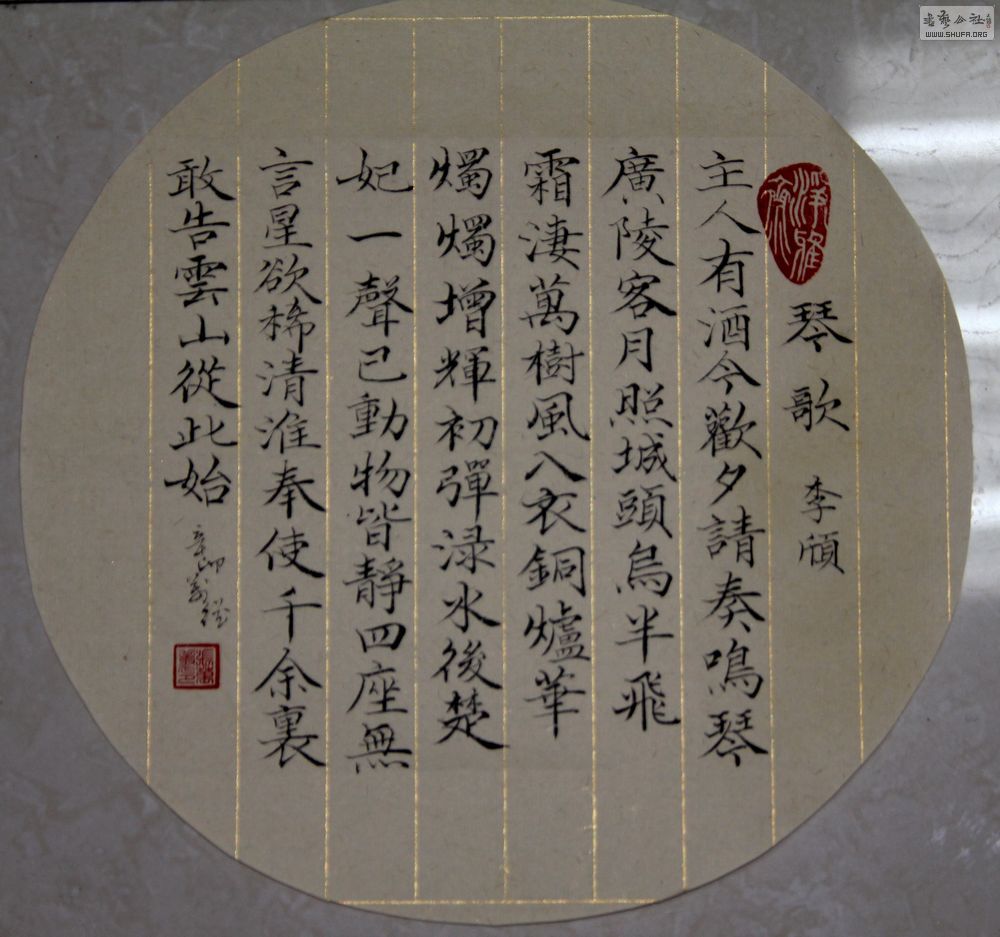 琴歌 李頎
主人有酒今歡夕請奏鳴琴
廣陵客月照城頭烏半飛
霜淒萬樹風入衣銅爐華
燭燭增輝初彈淥水後楚
妃一聲已動物皆靜四座無
言星欲稀清淮奉使千余裏
敢告雲山從此始
辛卯
書藝公社
WWW.SHUFA.ORG